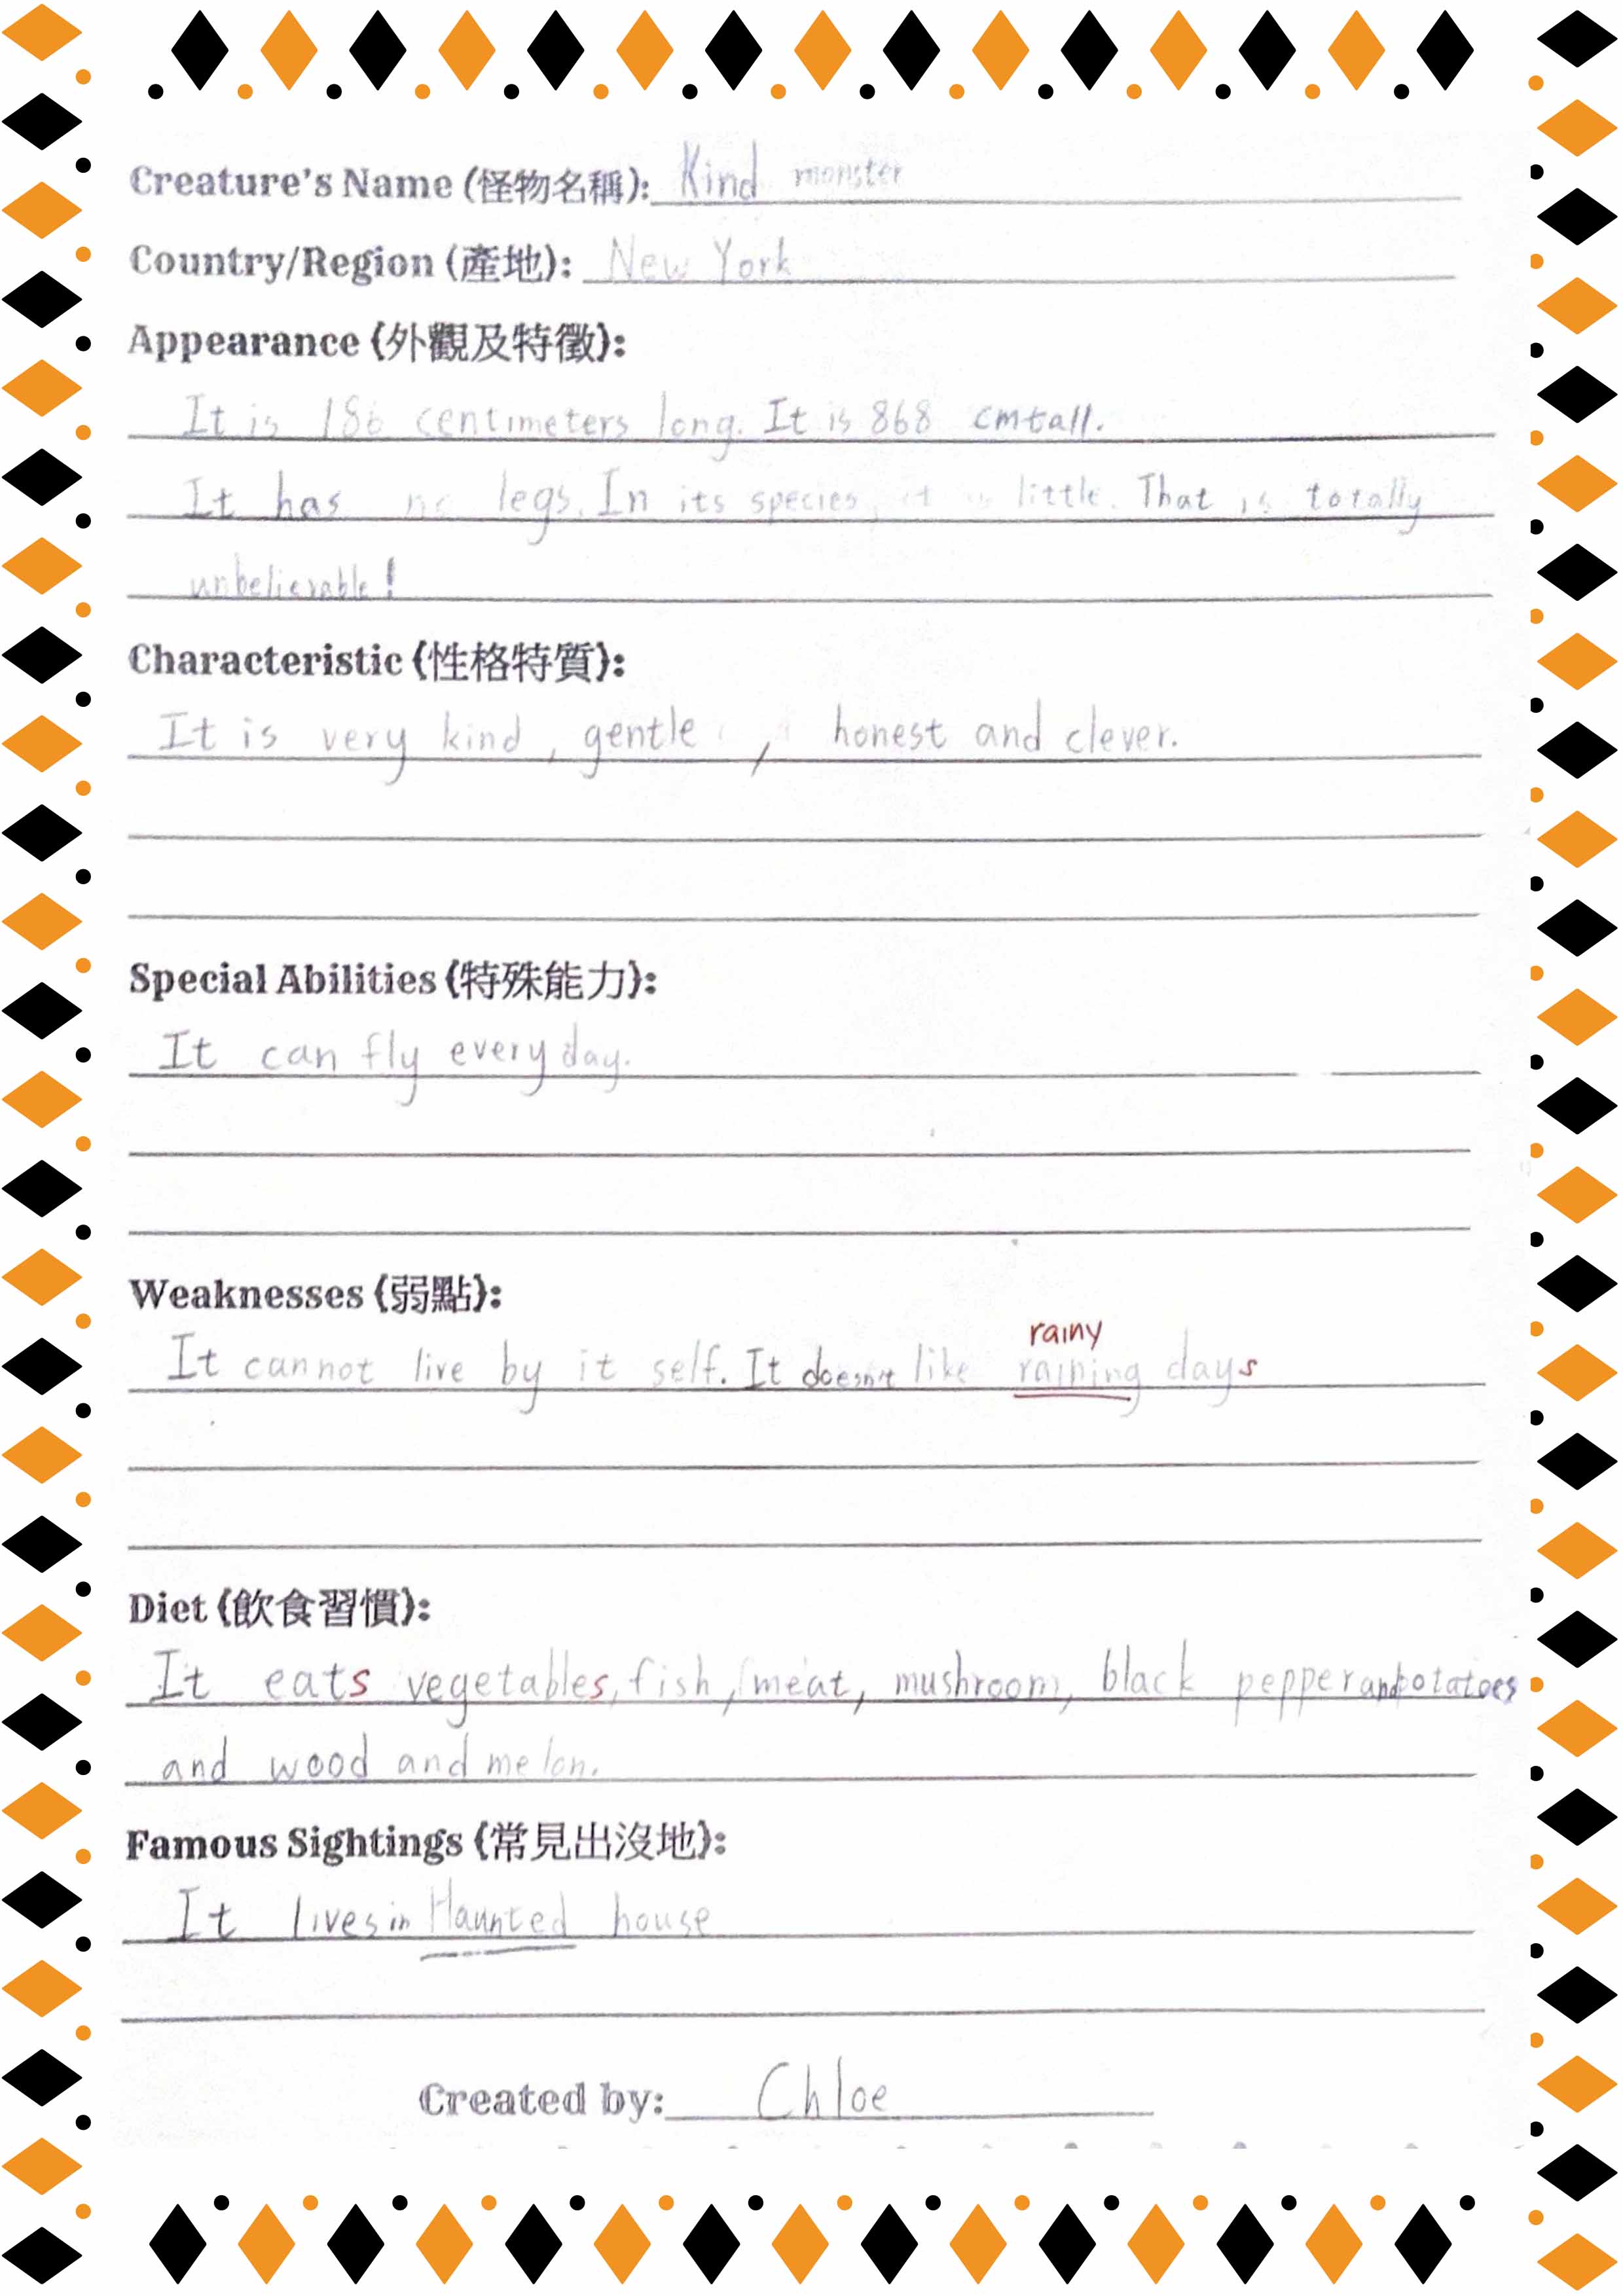 Creature's Name (怪物名稱): Kind monster
Country/Region (產地): New York
Appearance (外觀及特徵):
It is 186 centimeters long. It is 868 cm tall.
It has no legs. In its species, it is little. That is totally
unbelievable!
Characteristic (性格特質):
It is very kind, gentle, honest and clever.
Special Abilities (特殊能力):
It can fly every day.
Weaknesses (弱點):
rainy
It cannot live by it self. It doesn't like raining days
Diet (飲食習慣):
It eats vegetables, fish, meat, mushroom, black pepper and potatoes
and wood and melon.
Famous Sightings (常見出沒地):
It lives in Haunted house
Created by: Chloe